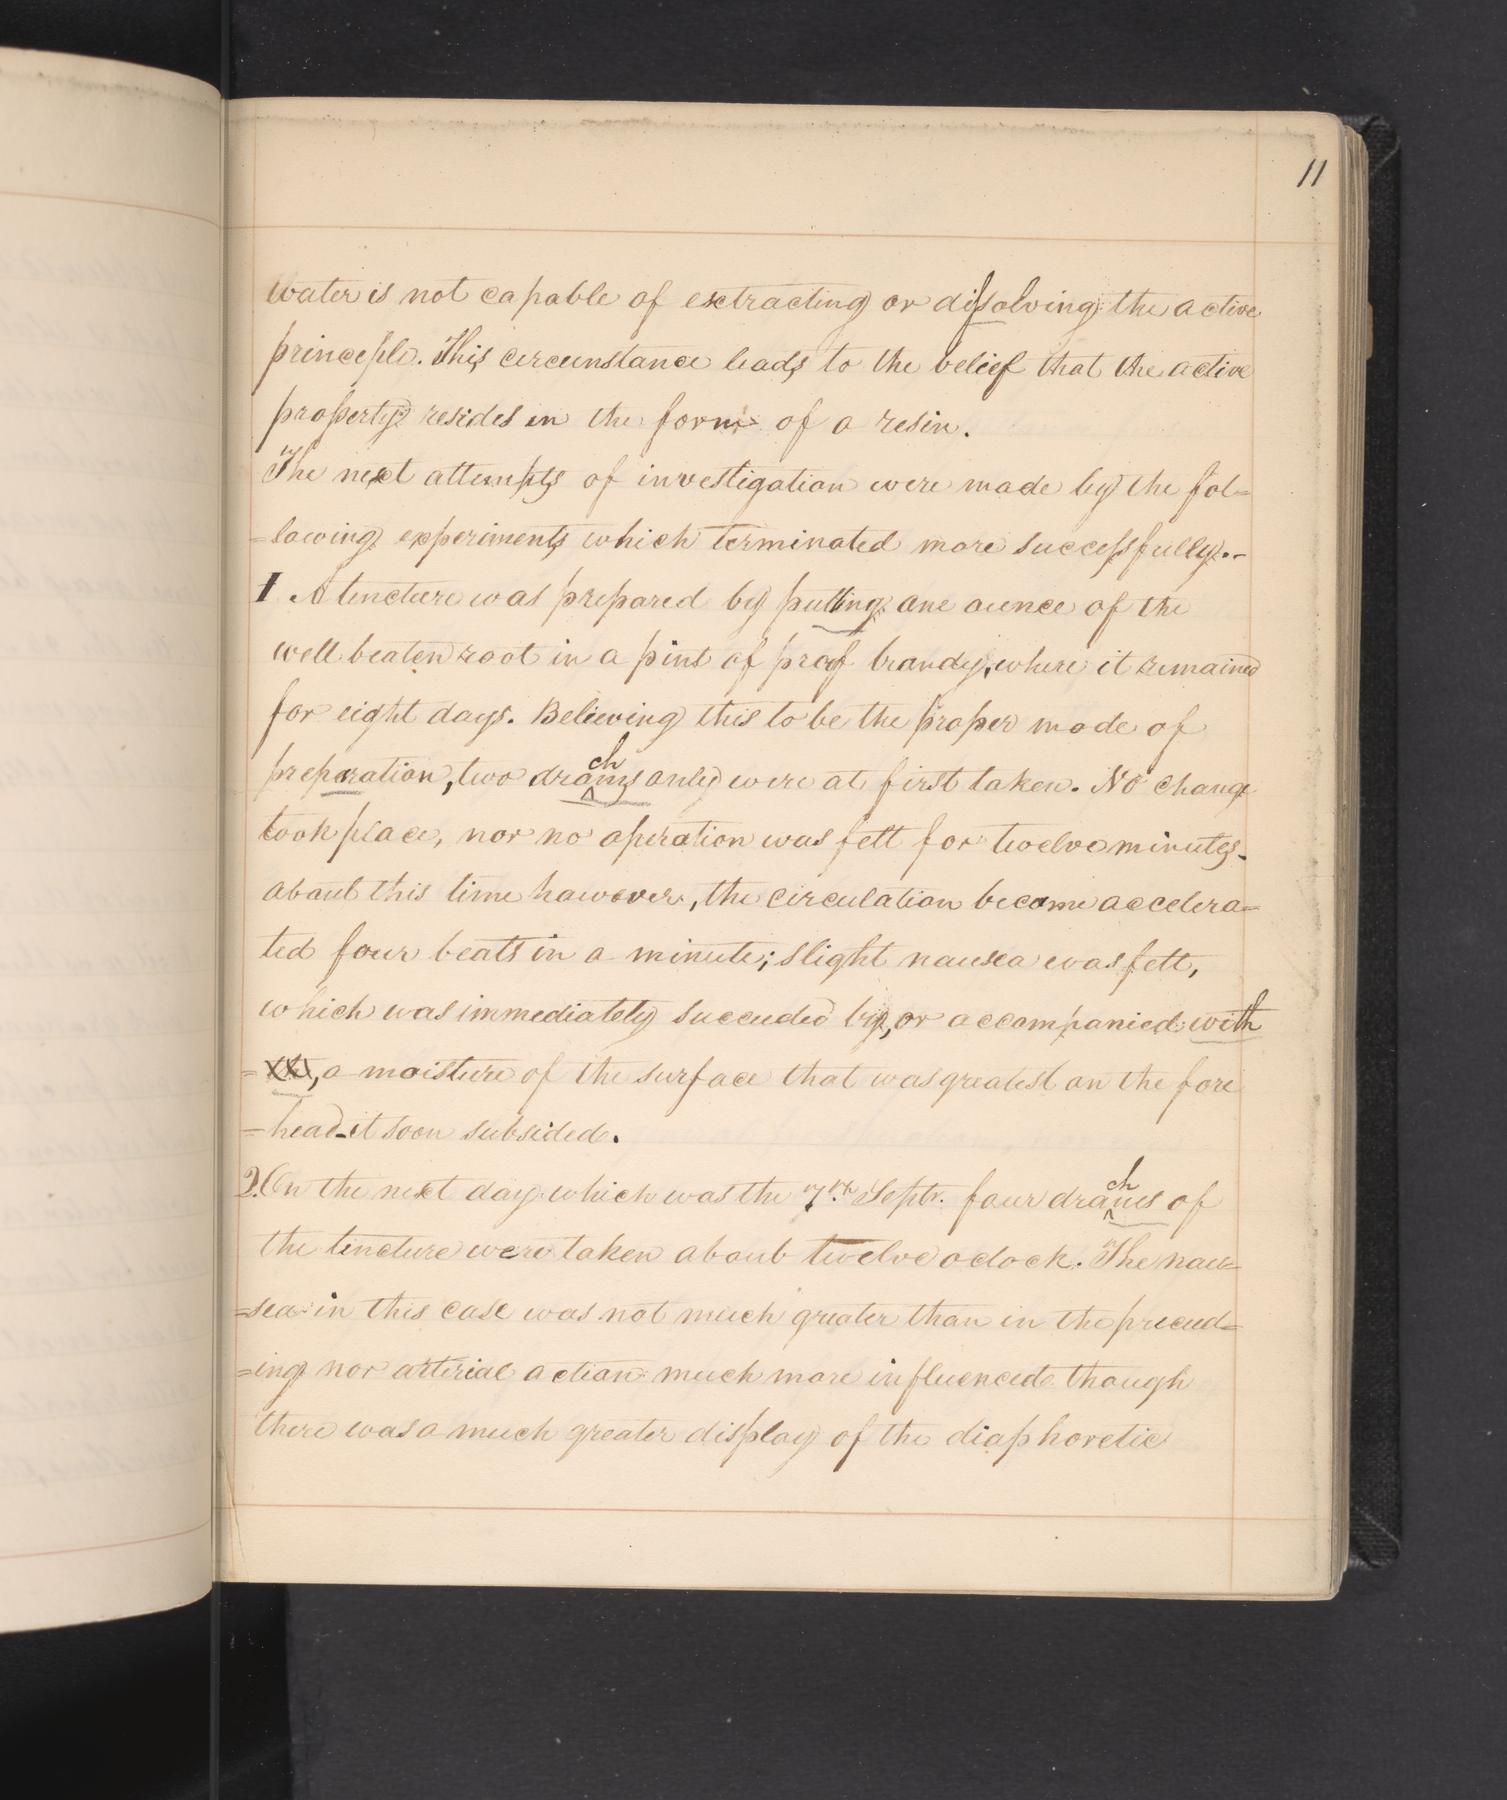 11
water is not capable of extracting or dissolving the active
principle. This circumstance leads to the belief that the active
property resides in the form of a resin.
The next attempts of investigation were made by the fol=
=lowing experiments which terminated more successfully.-
1. A tincture was prepared by putting one ounce of the
well beaten root in a pint of proof brandy, where it remained
for eight days. Believing this to be the proper mode of
preparation, two drachms only were at first taken. No change
took place, nor no operation was felt for twelve minutes.
about this time however, the circulation became accelera=
ted four beats in a minute; slight nausea was felt,
which was immediately succeeded by, or accompanied with
=, a moisture of the surface that was greatest on the fore
=head-it soon subsided.
2. On the next day which was the 7th Septr. four drachms of
the tincture were taken about twelve oclock. The nau=
=sea in this case was not much greater than in the preced=
=ing nor arterial action much more influenced though
there was a much greater display of the diaphoretic